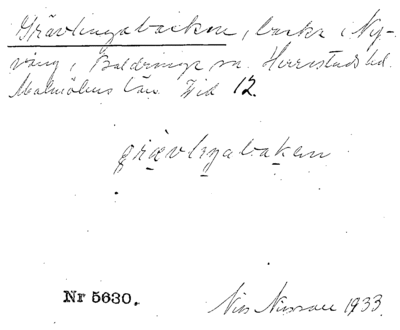 Grävlingabacken, backe i Ny-
väng, Baldringe sn. Herrestads hd.
Malmöhus län. Tid 12.
grævlıŋabakan
Nr 5630.
Nils Nilsson 1933.